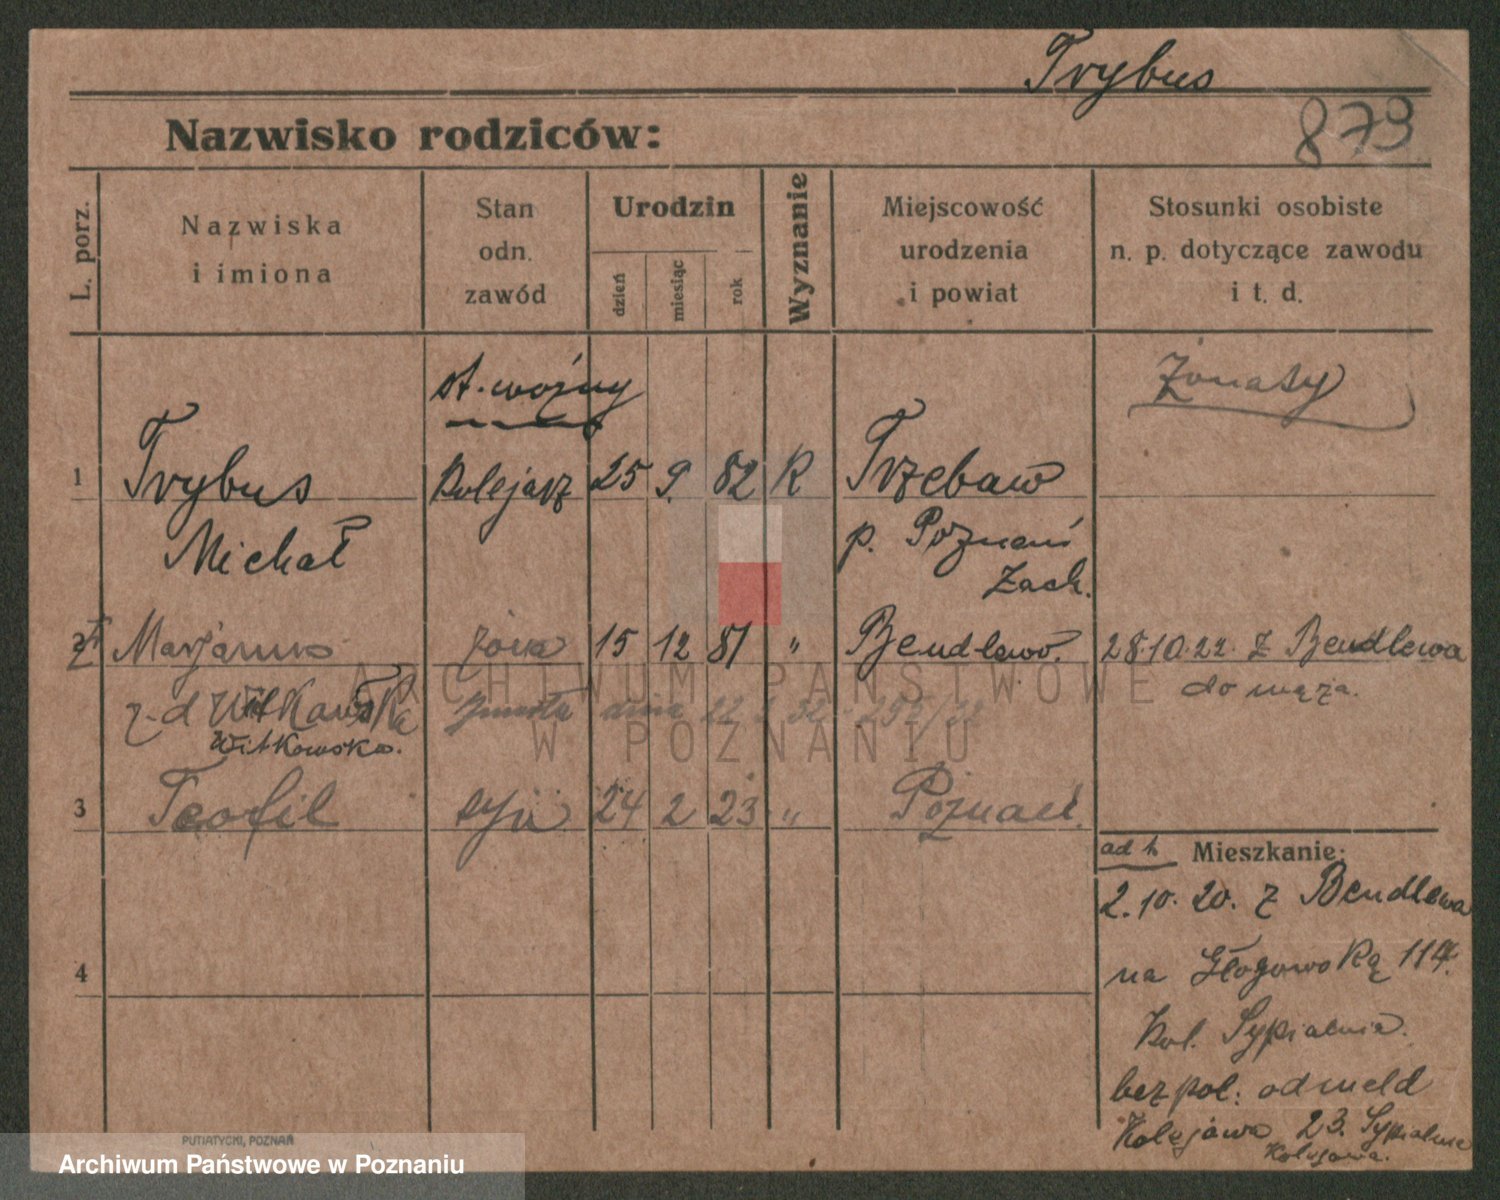 Trybus
879
Nazwisko rodziców:
L. porz.
Nazwiska
i imiona
Stan
odn.
zawód
Urodzin
dzień
miesiąc
rok
Wyznanie
Miejscowość
urodzenia
i powiat
Stosunki osobiste
n. p. dotyczące zawodu
i t. d.
st. woźny
Żonaty
1 Trybus kolejarz 25 9. 82 R Trzebaw
Michał p. Poznań
Zach.
2 Marjanna żona 15 12 81 " Bendlewo. 28.10.22. z Bendlewa
z d Witkowska zmarła dnia 22 32 295/32 do męża.
Witkowska.
3 Teofil syn 24 2 23 " Poznań.
ad h Mieszkanie:
2.10.20. z Bendlewa
4 na Głogowską 114.
Kol. Sypialnia.
bez pol. odmeld
Kolejowa 23. Sypialnia
Kolejowa.
ARCHIWUM PAŃSTWOWE
W POZNANIU
PUTIATYCKI, POZNAŃ
Archiwum Państwowe w Poznaniu